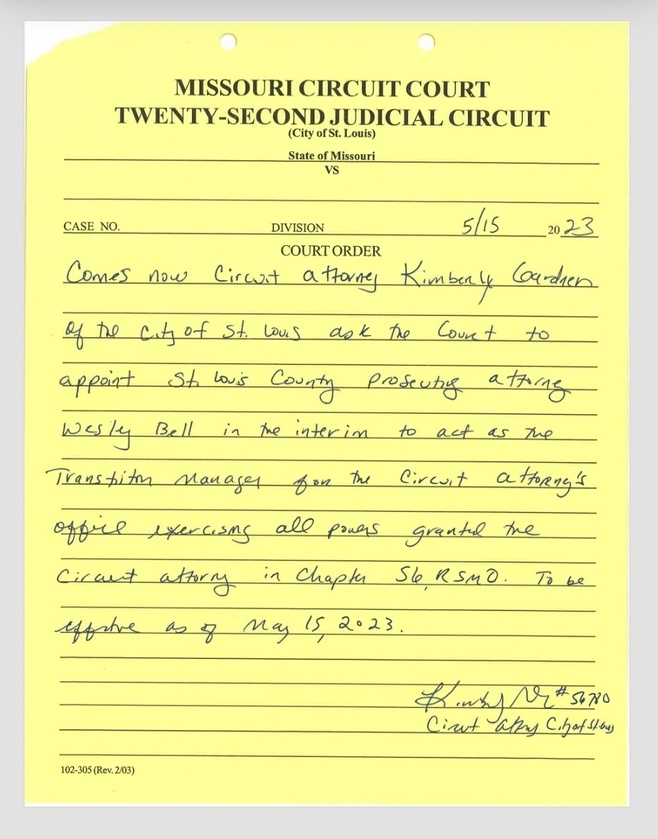 MISSOURI CIRCUIT COURT
TWENTY-SECOND JUDICIAL CIRCUIT
(City of St. Louis)
State of Missouri
VS
CASE NO. DIVISION 5/15 2023
COURT ORDER
Comes now Circuit attorney Kimberly Gardner
of the City of St. Louis ask the Court to
appoint St. Louis County Prosecuting attorney
Wesley Bell in the interim to act as the
Transition Manager for the Circuit attorney's
office exercising all powers granted the
Circuit attorney in Chapter 56, RSMO. To be
effective as of May 15, 2023.
#56780
Circuit Attorney City of St. Louis
102-305 (Rev. 2/03)